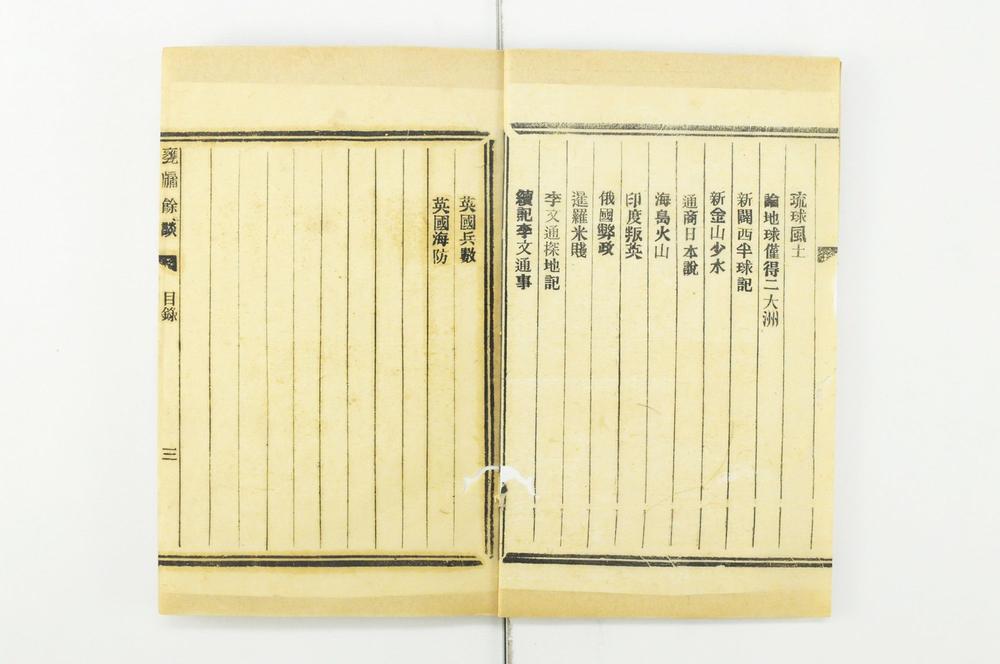 琉球風土
論地球僅得二大洲
新闢西半球記
新金山少水
通商日本說
海島火山
印度叛英
俄國弊政
暹羅米賤
李文通探地記
續記李文通事
英國兵數
英國海防
甕牖餘談
目錄
三